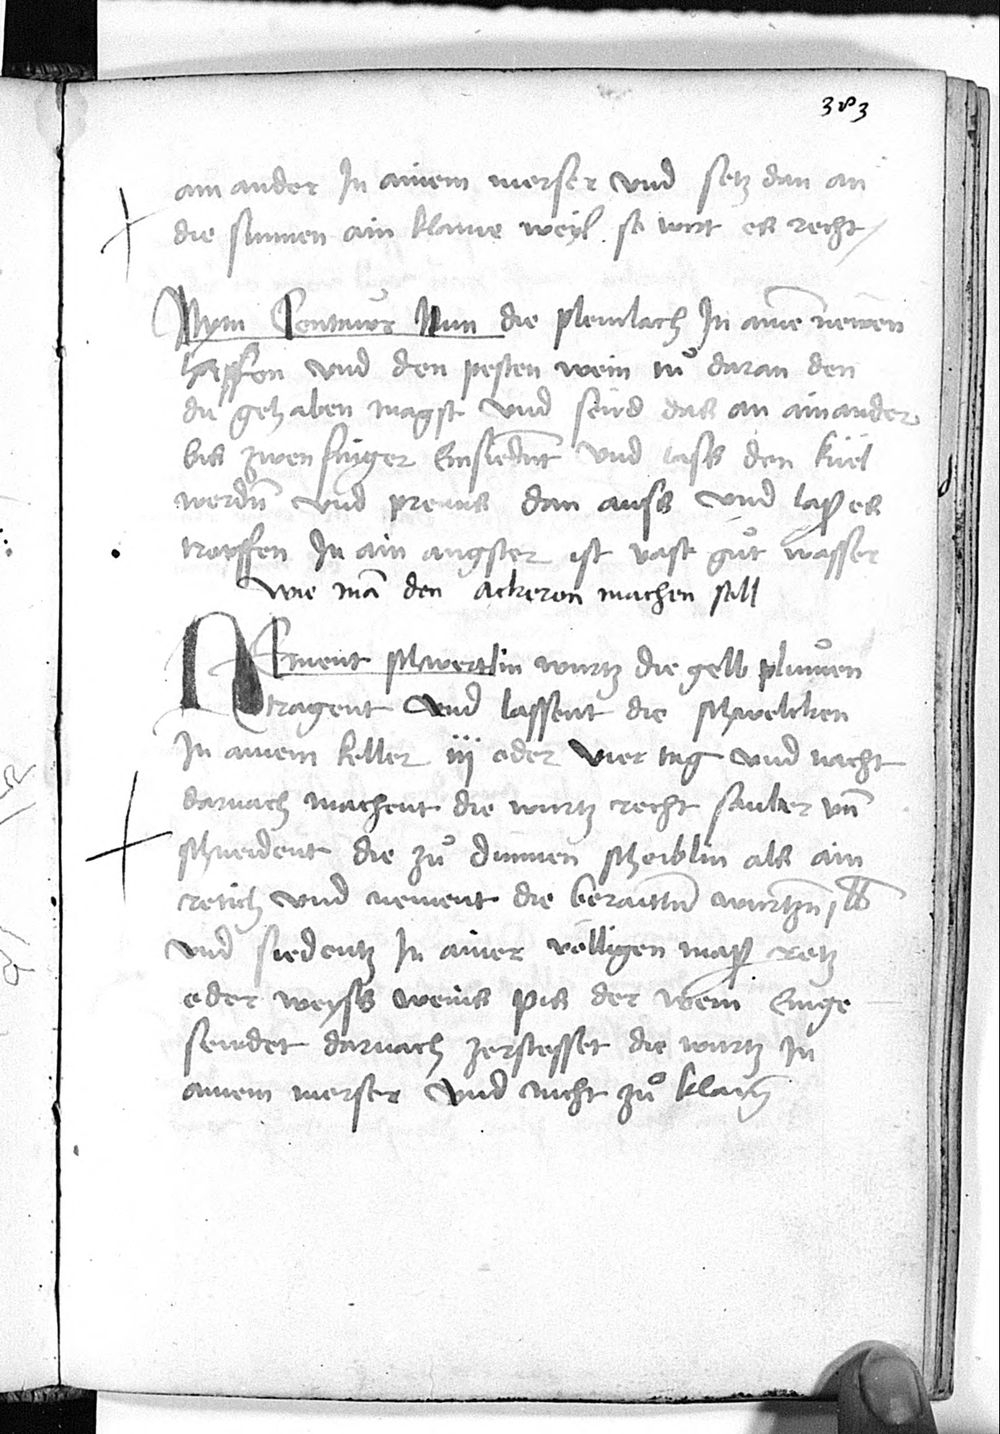 383
ain ander In ainem merser vnd setz dan an
die sunnen ain klaine weyl so wirt es recht /
Nym Centaur Nim die plemlach In aine newen
haffen vnd den pesten wein tů daran den
du gehaben magst vnd seud das an ainander
bis zwen finger Einsiednt vnd lass den küel
werdn vnd prenns dan auss vnd laß es
tropffen In ain angster ist vast gůt wasser
Wie mā den ackeron machen soll
NEment schwertlin wurtz die gelb plůmen
tragent vnd lassent die schwelcken
In ainem keller iij oder vier tag vnd nacht
darnach machent die wurtz recht sauber vn̄
schneident die zů dinnen scheiblin als ain
retich vnd nement die beraittn wurtzn j lb
vnd siedentz In ainer velligen maß retz
oder weyss weins pis der wein Einge
seudet darnach zerstosset die wurtz In
ainem merser vnd nicht zů klain